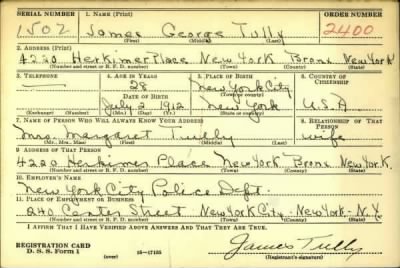 SERIAL NUMBER 1. NAME (Print) ORDER NUMBER
1502 James George Tully 2400
(First) (Middle) (Last)
2. ADDRESS (Print)
4220 Herkimer Place New York Bronx New York
(Number and street or R. F. D. number) (Town) (County) (State)
3. TELEPHONE 4. AGE IN YEARS 5. PLACE OF BIRTH 6. COUNTRY OF CITIZENSHIP
— 28 New York City
DATE OF BIRTH (Town or county)
July 2 1912 New York U.S.A
(Exchange) (Number) (Mo.) (Day) (Yr.) (State or country)
7. NAME OF PERSON WHO WILL ALWAYS KNOW YOUR ADDRESS 8. RELATIONSHIP OF THAT PERSON
Mrs. Margaret Tully wife
(Mr., Mrs., Miss) (First) (Middle) (Last)
9. ADDRESS OF THAT PERSON
4220 Herkimer Place New York Bronx New York.
(Number and street or R. F. D. number) (Town) (County) (State)
10. EMPLOYER'S NAME
New York City Police Dept.
11. PLACE OF EMPLOYMENT OR BUSINESS
240 Center Street New York City New York. N.Y.
(Number and street or R. F. D. number) (Town) (County) (State)
I AFFIRM THAT I HAVE VERIFIED ABOVE ANSWERS AND THAT THEY ARE TRUE.
REGISTRATION CARD
D. S. S. Form 1 (over) 16—17105 James Tully
(Registrant's signature)